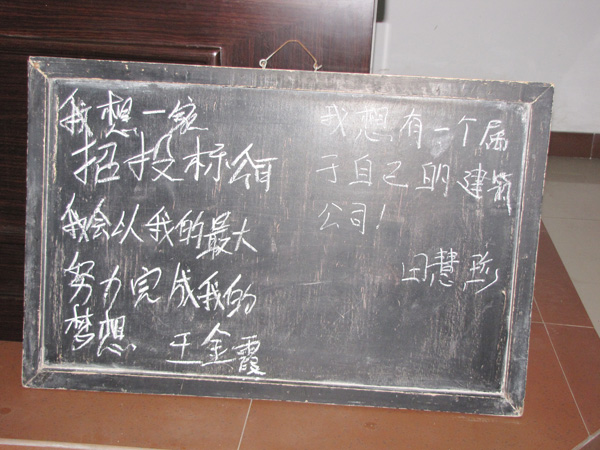 我想一
招投标公司
我会以我的最大
努力完成我的
梦想 王金霞
我想有一个属
于自己的建筑
公司！
田慧